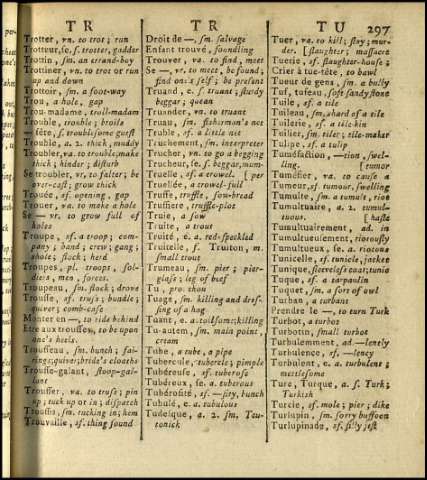 TR
TR
TU
297
Trotter, vn. to trot; run
Trotteur, se, f. trotter, gadder
Trottin, sm. an errand-boy
Trottiner, vn. to trot or run
up and down
Trottoir, sm. a foot-way
Trou, a hole, gap
Trou-madame, troll-madam
Trouble, trouble; broils
— fête, f. troublesome guest
Trouble, a. 2. thick, muddy
Troubler, va. to trouble; make
thick; hinder; disturb
Se troubler, vr. to falter; be
over-cast; grow thick
Trouée, sf. opening, gap
Trouer, va. to make a hole
Se — vr. to grow full of
holes
Troupe, sf. a troop; com-
pany; band; crew; gang;
shole; flock; herd
Troupes, pl. troops, sol-
diers, men, forces
Troupeau, sm. flock, drove
Trousse, sf. truss; bundle;
quiver; comb-case
Monter en —, to ride behind
Etre aux trousses, to be upon
one's heels.
Trousseau, sm. bunch; fai-
rings; quiver; bride's cloaths
Trousse-galant, stoop-gal-
lant
Trousser, va. to truss; pin
up; tuck up or in; dispatch
Troussis, sm. tucking in; hem
Trouvaille, sf. thing found
Droit de —, sm. salvage
Enfant trouvé, foundling
Trouver, va. to find, meet
Se —, vr. to meet, be found;
find one's self; be present
Truand, e, f. truant; sturdy
beggar; quean
Truander, vn. to truant
Truau, sm. fisherman's net
Truble, sf. a little net
Truchement, sm. interpreter
Trucher, vn. to go a begging
Trucheur, se, f. beggar, mum-
Truelle, sf. a trowel. [per
Truellée, a trowel-full
Truffe, truffle, sow-bread
Truffiere, truffle-plot
Truie, a sow
Truite, a trout
Truité, e, a. red-speckled
Truitelle, f. Truiton, m.
small trout
Trumeau, sm. pier; pier-
glass; leg of beef
Tu, pro. thou
Tuage, sm. killing and dres-
sing of a hog
Tuant, e, a. toilsome; killing
Tu-autem, sm. main point,
cream
Tube, a tube, a pipe
Tubercule, tubercle; pimple
Tubéreuse, sf. tuberose
Tubéreux, se, a. tuberous
Tubérosité, sf. —sity, bunch
Tubulé, e, a. tubulous
Tudesque, a. 2. sm. Teu-
tonick
Tuer, va. to kill; slay; mur-
der. [slaughter; massacre
Tuerie, sf. slaughter-house;
Crier à tue-tête, to bawl
Tueur de gens, sm. a bully
Tuf, tufeau, soft sandy stone
Tuile, sf. a tile
Tuileau, sm. shard of a tile
Tuilerie, sf. a tile-kiln
Tuilier, sm. tiler; tile-maker
Tulipe, sf. a tulip
Tuméfaction, —tion, swel-
ling. [tumor
Tuméfier, va. to cause a
Tumeur, sf. tumour, swelling
Tumulte, sm. a tumult, riot
Tumultuaire, a. 2. tumul-
tuous. [haste
Tumultuairement, ad. in
Tumultueusement, riotously
Tumultueux, se, a. riotous
Tunicelle, sf. tunicle, jacket
Tunique, sleeveless coat; tunic
Tuque, sf. a tarpaulin
Tuquet, sm. a sort of owl
Turban, a turbant
Prendre le —, to turn Turk
Turbot, a turbot
Turbotin, small turbot
Turbulemment, ad. —lently
Turbulence, sf. —lency
Turbulent, e, a. turbulent;
mettlesome
Turc, Turque, a. f. Turk;
Turkish
Turcie, sf. mole; pier; dike
Turlupin, sm. sorry buffoon
Turlupinade, sf. silly jest